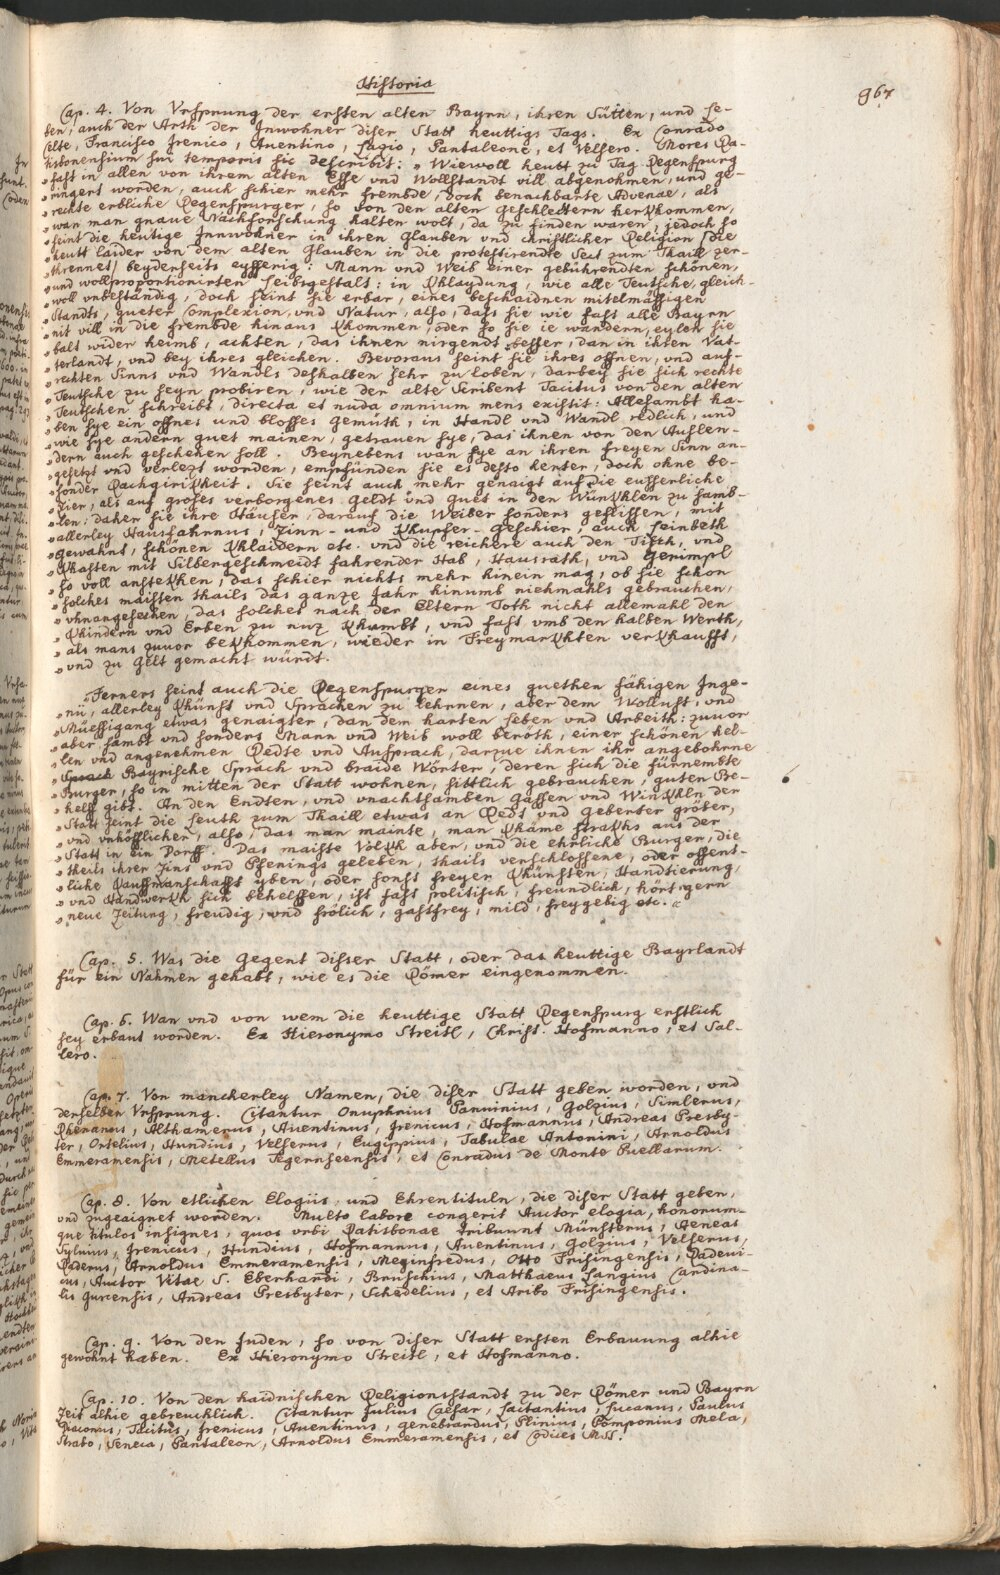 Historia
967
Cap. 4. Von Vrsprung der ersten alten Bayrn, ihren Sütten, und Le-
ben, auch der Arth der Inwohner diser Statt heuttigs Tags. Ex Conrado
Celte, Francisco Irenico, Auentino, Lagio, Pantaleone, et Velsero. Mores Ra-
tisbonensium sui temporis sic describit: „ Wiewoll heutt zu Tag Regenspurg
„ fast in allen von ihrem alten Esse und Wollstandt vill abgenohmen, und ge-
„ ringert worden, auch schier mehr frembde, doch benachbarte Advenae, als
„ rechte erbliche Regenspurger, so von den alten Geschlechtern herkhommen,
„ wan man gnaue Nachforschung halten wolt, da zu finden waren, jedoch so
„ seint die heutige Innwohner in ihren Glauben vnd christlicher Religion (die
„ heutt laider von dem alten Glauben in die protestirende Sect zum Thaill zer-
„ thrennet) beyderseits eyfferig: Mann vnd Weib einer gebührendten schönen,
„ und wollproportionirten Leibsgestalt: in Khlaydung, wie alle Teutsche, gleich-
„ woll vnbeständig, doch seint sie erbar, eines beschaidnen mitelmässigen
„ Standts, gueter Complexion, vnd Natur, also, dass sie wie fast alle Bayrn
„ nit vill in die frembde hinaus khommen, oder so sie ie wandern, eylen sie
„ balt wider heimb, achten, das ihnen nirgendt besser, dan in ihren Vat-
„ terlandt, vnd bey ihres gleichen. Bevoraus seint sie ihres offnen, vnd auf-
„ rechten Sinns vnd Wandls desthalben sehr zu loben, darbey sie sich rechte
„ Teutsche zu seyn probiren, wie der alte Scribent Tacitus von den alten
„ Teutschen schreibt, directa et nuda omnium mens existit: Allesambt ha-
„ ben sye ein offnes und blosses Gemüth, in Handl vnd Wandl redlich, und
„ wie sye andern guet mainen, getrauen sye, das ihnen von den Auslen-
„ dern auch geschehen soll. Beynebens wan sye an ihren freyen Sinn an-
„ gesetzt vnd verlezt worden, empfünden sie es desto herter, doch ohne be-
„ sonder Rachgirikheit. Sie seint auch mehr genaigt auf die eusserliche
„ Zier, als auf grosses verborgenes Geldt vnd Guet in den Wünkhlen zu samb-
„ len, daher sie ihre Häuser, darauf die Weiber sonders geflissen, mit
„ allerley Hausfahrnus, Zinn- und Khupfer-Geschier, auch Leinbeth
„ Gewahnt, schönen Khlaidern etc. vnd die reichere auch den Tisch, vnd
„ Khasten mit Silbergeschmeidt fahrender Hab, Hausrath, vnd Gerimpl
„ so voll anstekhen, das schier nichts mehr hinein mag, ob sie schon
„ solches maisten thails das ganze Jahr hinumb niehmahls gebrauchen,
„ vnnangesechen, das solches nach der Eltern Toth nicht allemahl den
„ Khindern vnd Erben zu nuz khumbt, vnd fast vmb den halben Werth,
„ als mans zuuor bekhommen, wieder in Freymarkhten verkhaufft,
„ vnd zu Gelt gemacht würdt.
„ Ferners seint auch die Regenspurger eines guethen fähigen Inge-
„ nii, allerley Khünst vnd Sprachen zu lehrnen, aber dem Wollust, vnd
„ Müessigang etwas genaigter, dan dem harten Leben vnd Arbeith: zuuor
„ aber sambt vnd sonders Mann vnd Weib woll beröth, einer schönen hel-
„ len vnd angenehmen Redte vnd Aussprach, darzue ihnen ihr angebohrne
„ Sprach Bayrische Sprach vnd braide Wörter, deren sich die fürnembte
„ Burger, so in mitten der Statt wohnen, sittlich gebrauchen, guten Be-
„ helff gibt. An den Endten, vnd vnachtsamben Gassen vnd Winkhln der
„ Statt seint die Leuth zum Thaill etwas an Redt vnd Geberten gröber,
„ vnd vnhöfflicher, also, das man mainte, man khäme strakhs aus der
„ Statt in ein Dorff. Das maiste Volkh aber, und die ehrliche Burger, die
„ theils ihrer Zins vnd Pfenings geleben, thails verschlossene, oder offent-
„ liche Kauffmanschafft yben, oder sonst freyer Khünsten, Handtierung,
„ vnd Handwerkh sich behelffen, ist fast politisch, freundlich, hört gern
„ neue Zeitung, freudig, vnd frölich, gastfrey, mild, freygebig etc. „
Cap. 5. Was die Gegent diser Statt, oder das heuttige Bayrlandt
für ein Nahmen gehabt, wie es die Römer eingenommen.
Cap. 6. Wan vnd von wem die heuttige Statt Regenspurg erstlich
sey erbaut worden. Ex Hieronymo Streitl, Christ. Hofmanno, et Sal-
lero.
Cap. 7. Von mancherley Namen, die diser Statt geben worden, vnd
derselben Vrsprung. Citantur Onuphrius Panuinius, Golzius, Simlerus,
Rhenanus, Althamerus, Auentinus, Irenicus, Hofmannus, Andreas Presby-
ter, Ortelius, Hundius, Velserus, Eugippius, Tabulae Antonini, Arnoldus
Emmeramensis, Metellus Tegernseensis, et Conradus de Monte Puellarum.
Cap. 8. Von etlichen Elogiis, und Ehrentituln, die diser Statt geben,
vnd zugeaignet worden. Multo labore congerit Auctor elogia, honorum-
que titulos insignes, quos vrbi Ratisbonae tribuunt Münsterus, Aeneas
Syluius, Irenicus, Hundius, Hofmannus, Auentinus, Golzius, Velserus,
Raderus, Arnoldus Emmeramensis, Meginfredus, Otto Frisingensis, Radeui-
cus, Auctor Vitae S. Eberhardi, Bruschius, Matthaeus Langius Cardina-
lis Gurcensis, Andreas Presbyter, Schedelius, et Aribo Frisingensis.
Cap. 9. Von den Juden, so von diser Statt ersten Erbauung alhie
gewohnt haben. Ex Hieronymo Streitl, et Hofmanno.
Cap. 10. Von den haidnischen Religionsstandt zu der Römer und Bayrn
Zeit alhie gebreuchlich. Citantur Julius Caesar, Lactantius, Lucanus, Paulus
Diaconus, Tacitus, Irenicus, Auentinus, Genebrardus, Plinius, Pomponius Mela,
Strabo, Seneca, Pantaleon, Arnoldus Emmeramensis, et Codices MSS.